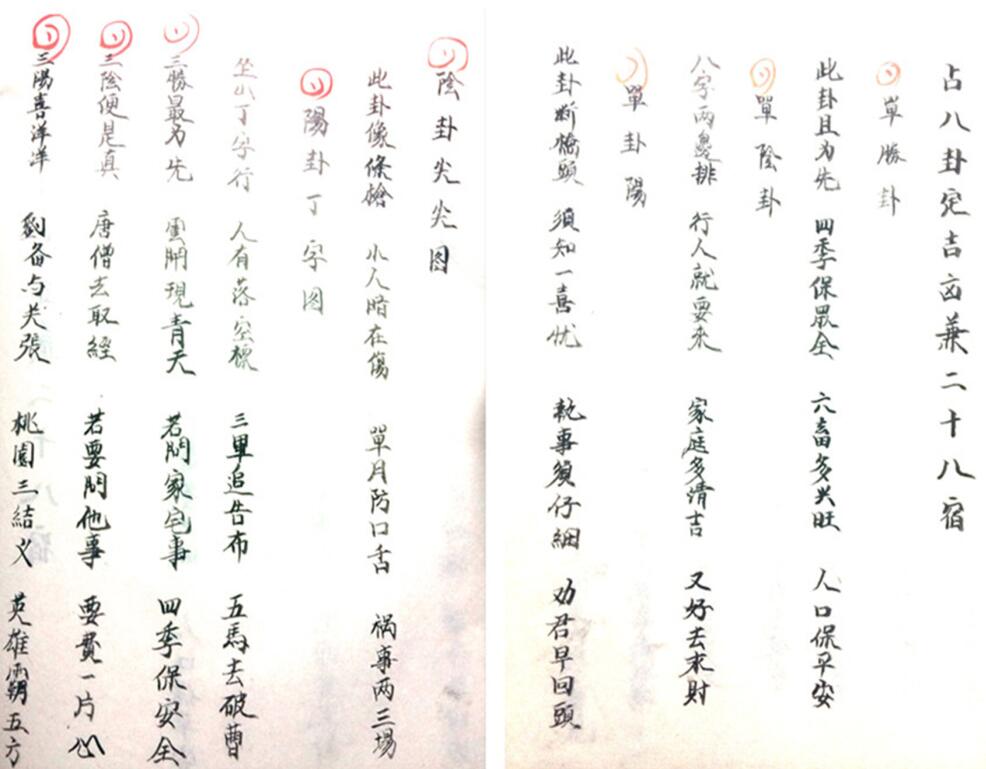 占八卦定吉凶兼二十八宿
單勝卦
此卦且为先 四季保眾全 六畜多兴旺 人口保平安
單陰卦
八字两邊排 行人就要来 家庭多清吉 又好去求財
單卦陽
此卦断橋頭 須知一喜忧 執事須仔細 劝君早回頭
陰卦尖尖图
此卦像條槍 小人暗在傷 單月防口舌 祸事两三場
陽卦丁字图
坐山丁字行 人有落空標 三里追告布 五馬去破曹
三勝最为先 雲開現青天 若問家宅事 四季保安全
三陰便是真 唐僧去取經 若要問他事 要費一片心
三陽喜洋洋 劉备与关張 桃園三結义 英雄霸五方